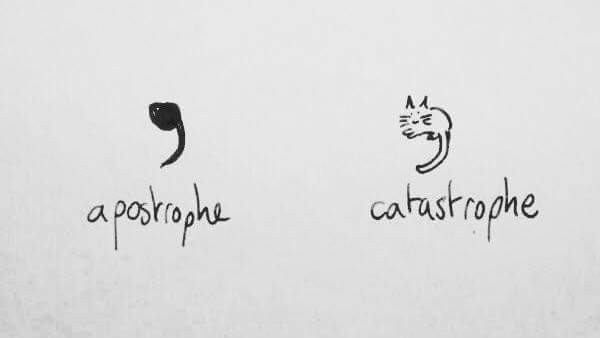 apostrophe
catastrophe